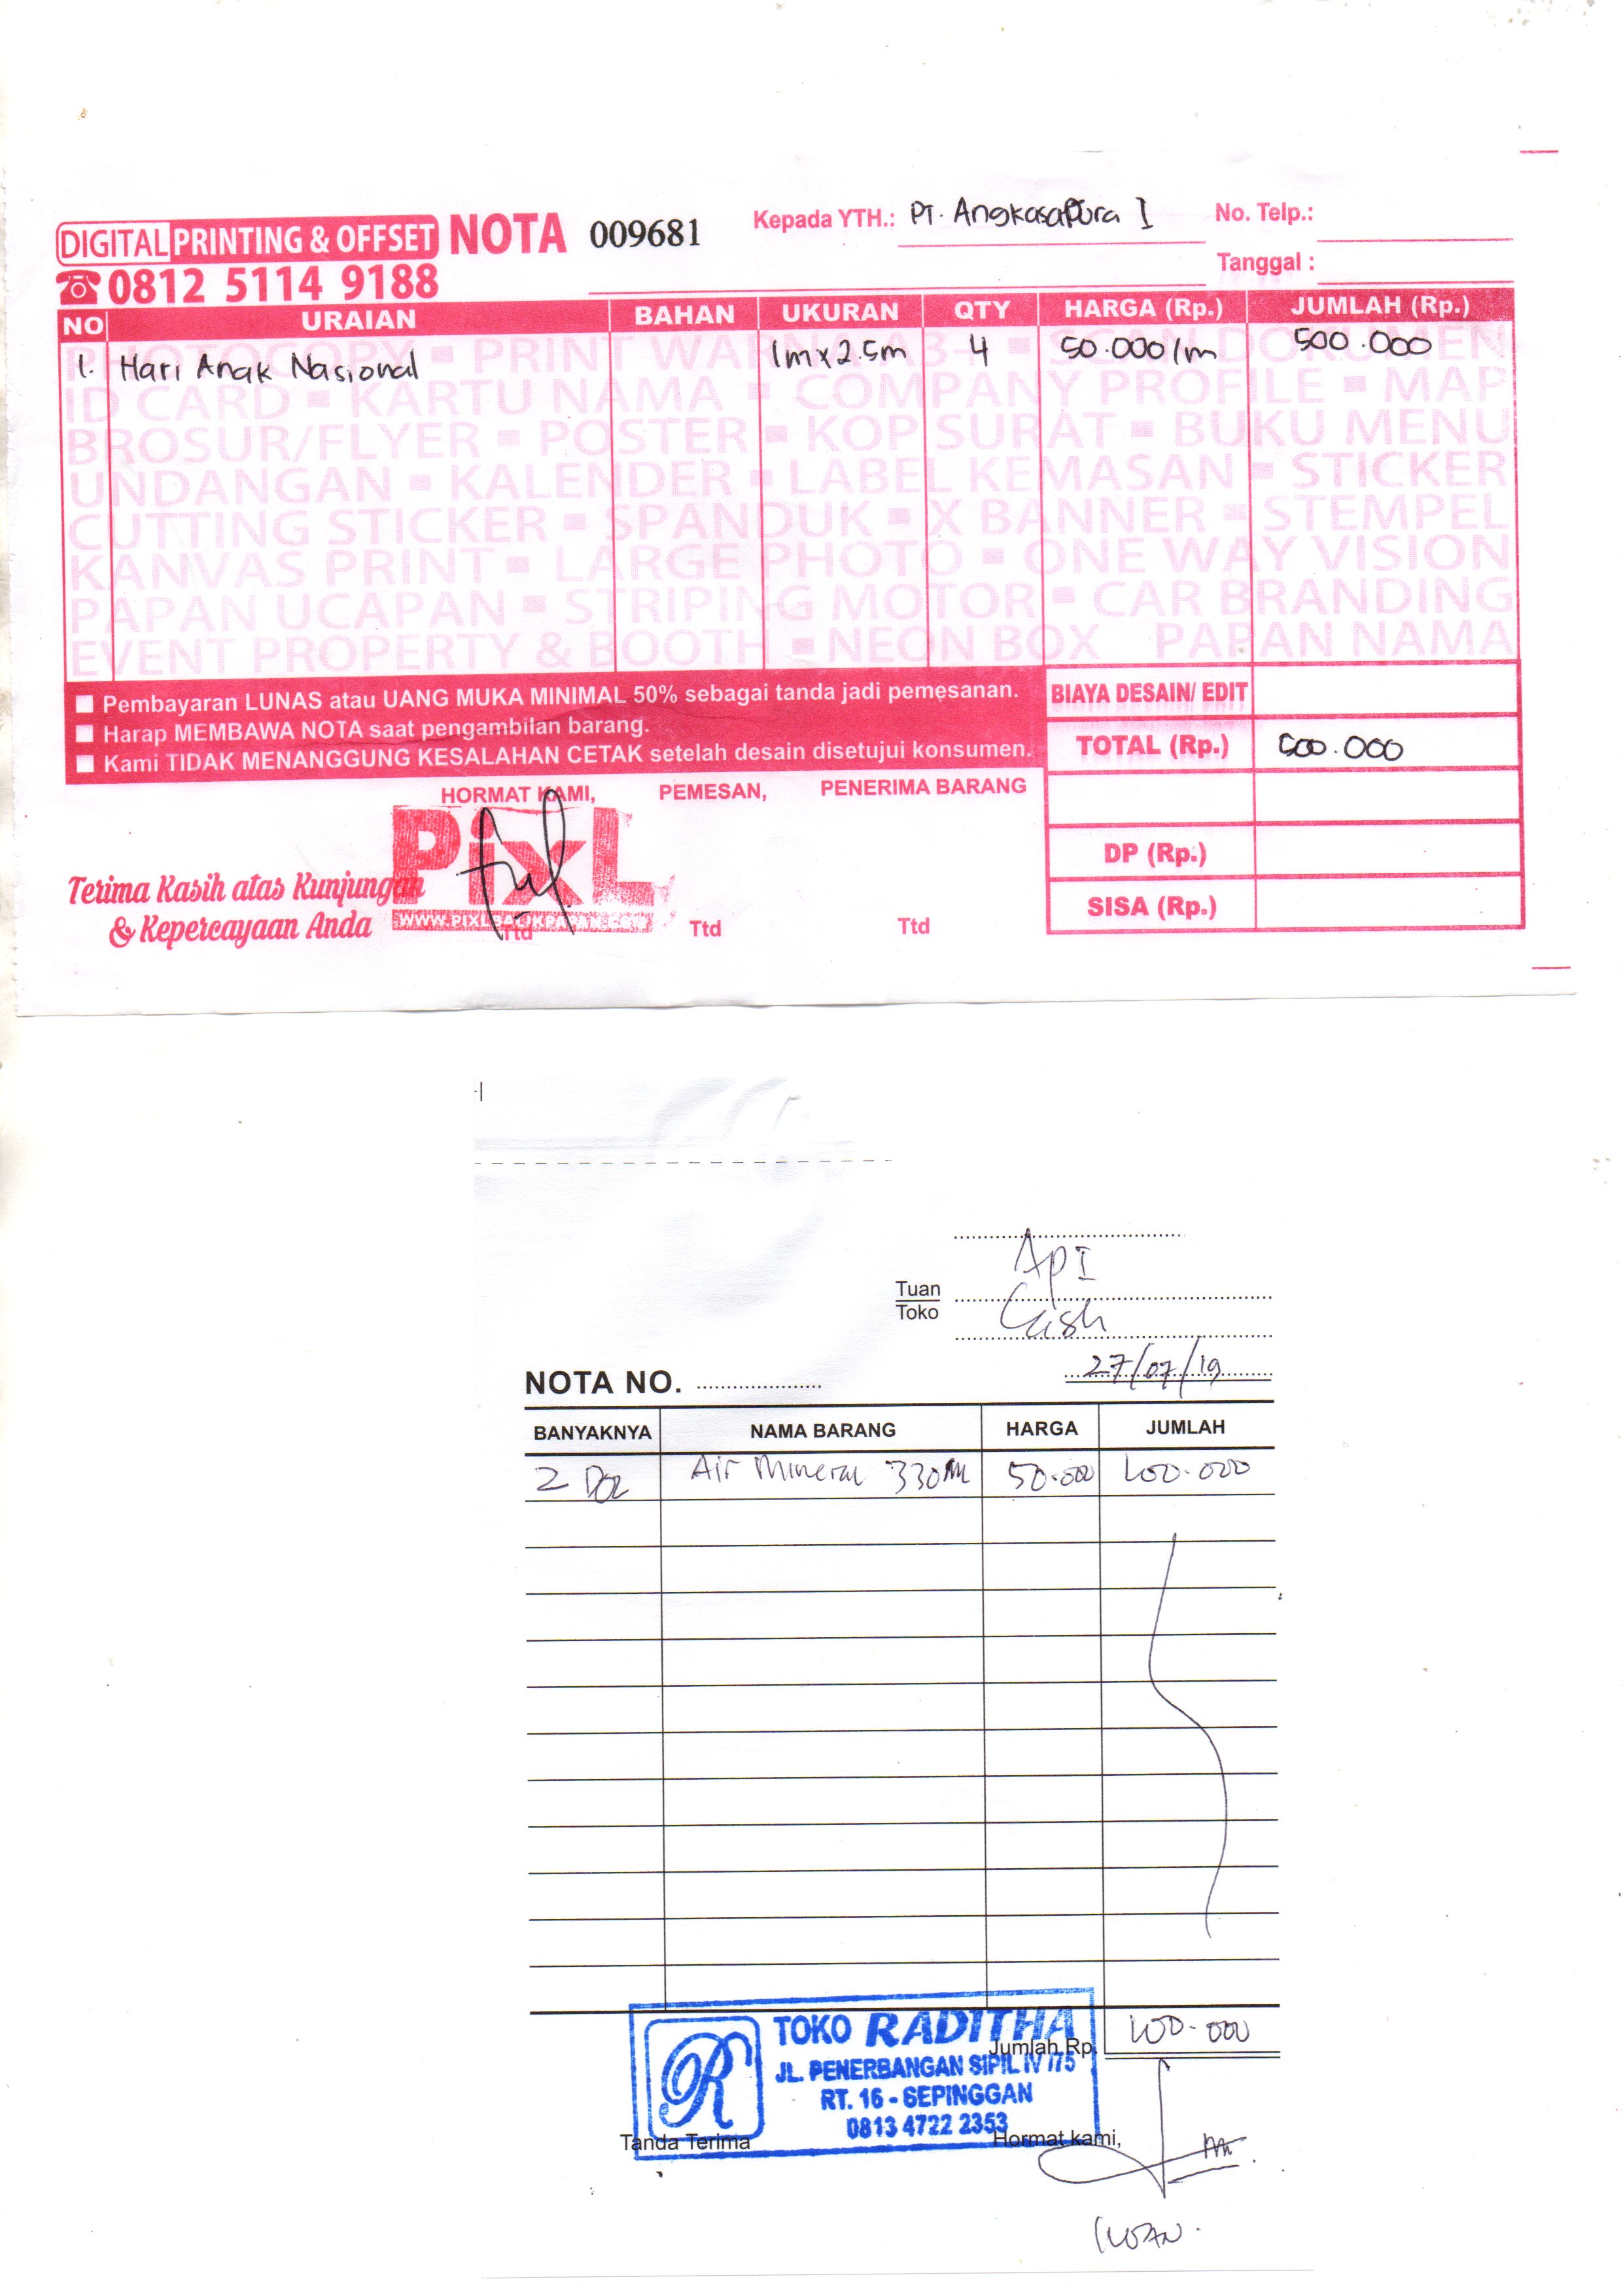 DIGITAL PRINTING & OFFSET NOTA 009681 Kepada YTH.: PT. Angkasapura I No. Telp.:
☎ 0812 5114 9188 Tanggal :
NO URAIAN BAHAN UKURAN QTY HARGA (Rp.) JUMLAH (Rp.)
1. Hari Anak Nasional 1m x 2.5m 4 50.000/m 500.000
PHOTOCOPY ▪ PRINT WARNA ▪ SCAN DOKUMEN
ID CARD ▪ KARTU NAMA ▪ COMPANY PROFILE ▪ MAP
BROSUR/FLYER ▪ POSTER ▪ KOP SURAT ▪ BUKU MENU
UNDANGAN ▪ KALENDER ▪ LABEL KEMASAN ▪ STICKER
CUTTING STICKER ▪ SPANDUK ▪ X BANNER ▪ STEMPEL
KANVAS PRINT ▪ LARGE PHOTO ▪ ONE WAY VISION
PAPAN UCAPAN ▪ STRIPING MOTOR ▪ CAR BRANDING
EVENT PROPERTY & BOOTH ▪ NEON BOX PAPAN NAMA
Pembayaran LUNAS atau UANG MUKA MINIMAL 50% sebagai tanda jadi pemesanan.
Harap MEMBAWA NOTA saat pengambilan barang.
Kami TIDAK MENANGGUNG KESALAHAN CETAK setelah desain disetujui konsumen.
BIAYA DESAIN/ EDIT
TOTAL (Rp.) 500.000
DP (Rp.)
SISA (Rp.)
HORMAT KAMI, PEMESAN, PENERIMA BARANG
PixL
WWW.PIXLBALIKPAPAN.COM
Terima Kasih atas Kunjungan
& Kepercayaan Anda
Ttd Ttd Ttd
Tuan API
Toko Cash
27/07/19
NOTA NO.
BANYAKNYA NAMA BARANG HARGA JUMLAH
2 Dos Air Mineral 330 ml 50.000 100.000
Jumlah Rp. 100.000
TOKO RADITHA
JL. PENERBANGAN SIPIL IV /75
RT. 16 - SEPINGGAN
0813 4722 2353
Tanda Terima Hormat kami,